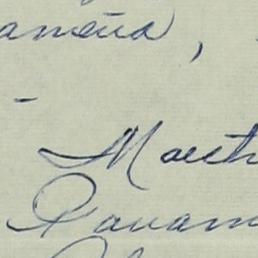 ameña,
-
Maestr
Panam